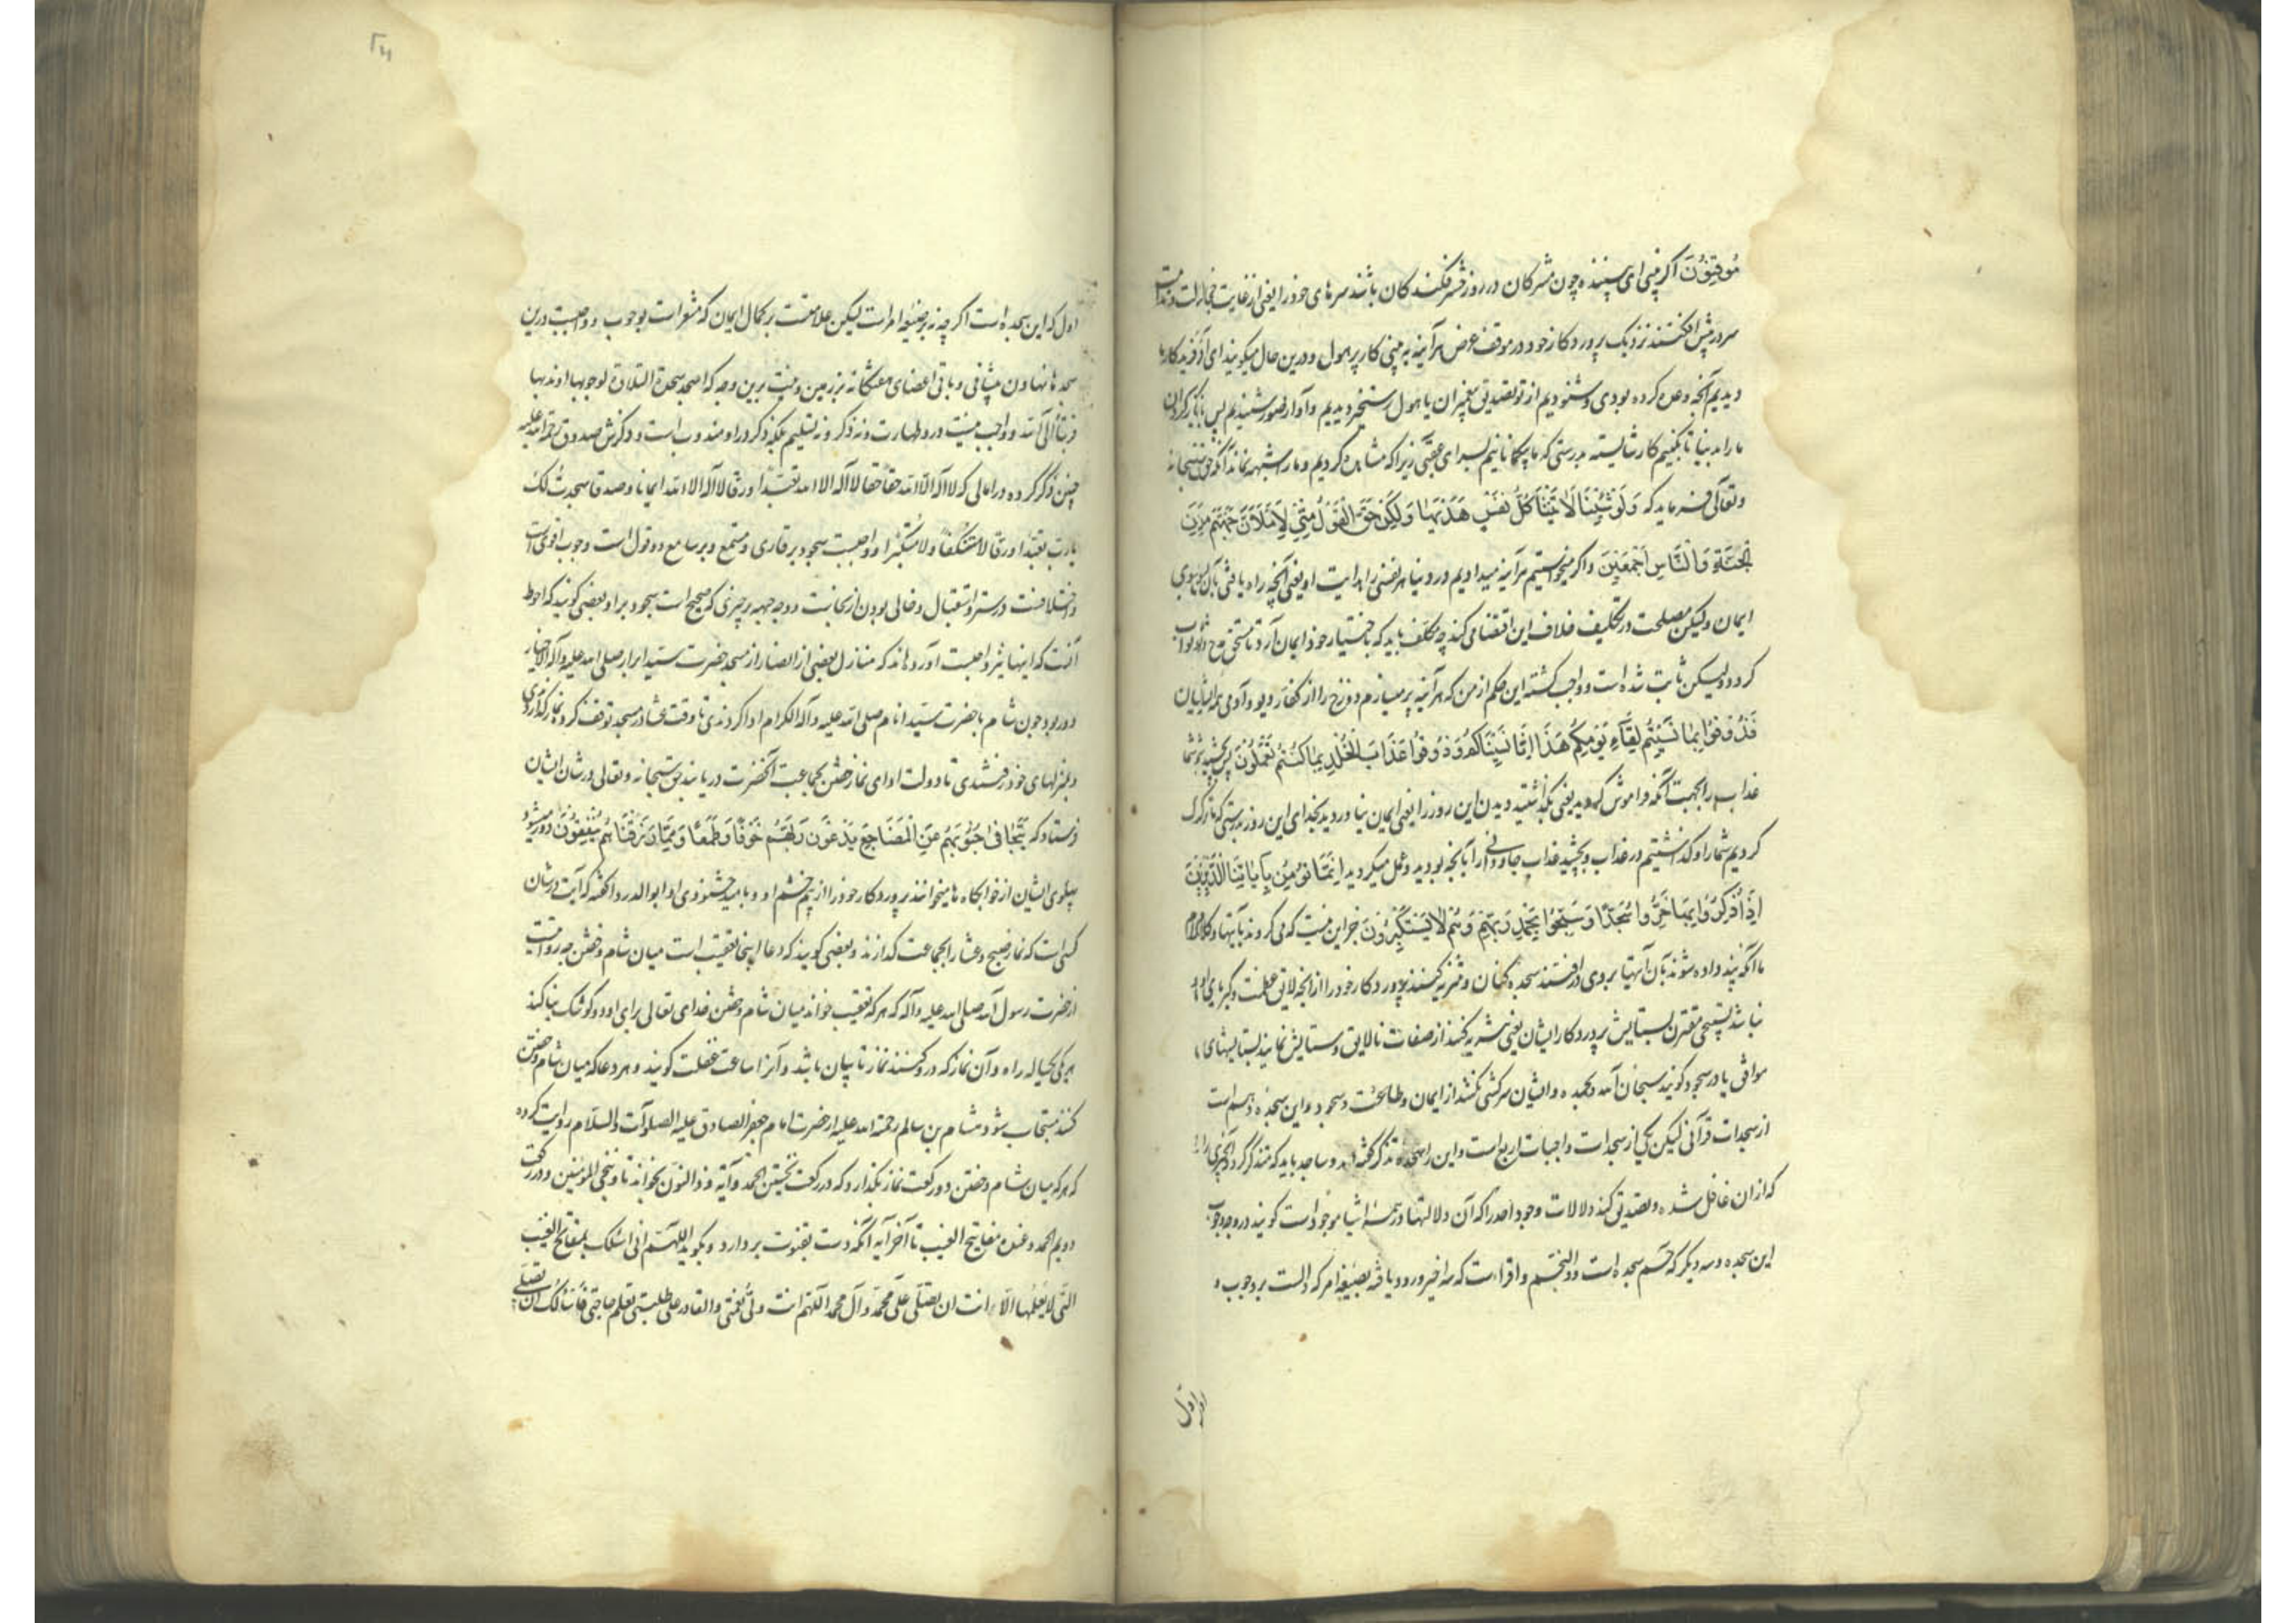 مُوقِنُونَ اگر بینی ای بیننده چون مشرکان در روز حشر فکنندگان باشند سرهای خود را یعنی از غایت خجالت و ندامت
سر در پیش افکنند نزدیک پروردگار خود در موقف عرض هرآینه به بینی کار پر هول و درین حال میگویند ای آفریدگار ما
دیدیم آنچه وعده کرده بودی و شنودیم از تو تصدیق پیغمبران یا هول رستخیز دیدیم و آواز صور شنیدیم پس بازگردان
ما را بدنیا تا بکنیم کار شایسته بدرستی که ما بیکمانانیم بسرای عقبی زیرا که مشاهده کردیم و ما را شبهه نماند آنکه حق سبحانه
و تعالی فرماید که وَلَوْ شِئْنَا لَآتَيْنَا كُلَّ نَفْسٍ هُدَاهَا وَلَكِنْ حَقَّ الْقَوْلُ مِنِّي لَأَمْلَأَنَّ جَهَنَّمَ مِنَ
الْجِنَّةِ وَالنَّاسِ أَجْمَعِينَ و اگر میخواستیم هرآینه میدادیم در دنیا هر نفسی را هدایت او یعنی آنچه راه یافتی بآن بسوی
ایمان ولیکن مصلحت در تکلیف خلاف این اقتضا می کند چه مکلف باید که باختیار خود ایمان آرد تا مستحق مدح و ثواب
گردد ولیکن ثابت شده است و واجب گشته این حکم از من که هرآینه پر میسازم دوزخ را از کفار دیو و آدمی همه ایشان
فَذُوقُوا بِمَا نَسِيتُمْ لِقَاءَ يَوْمِكُمْ هَذَا إِنَّا نَسِينَاكُمْ وَذُوقُوا عَذَابَ الْخُلْدِ بِمَا كُنْتُمْ تَعْمَلُونَ پس بچشید شما
عذاب را بجهت آنکه فراموش کردید یعنی بگذاشتید دیدن این روز را یعنی ایمان نیاوردید بجزای این روز بدرستی که ما ترک
کردیم شما را و گذاشتیم در عذاب و بچشید عذاب جاودانی را بآنچه بودید و عمل میکردید إِنَّمَا يُؤْمِنُ بِآيَاتِنَا الَّذِينَ
إِذَا ذُكِّرُوا بِهَا خَرُّوا سُجَّدًا وَسَبَّحُوا بِحَمْدِ رَبِّهِمْ وَهُمْ لَا يَسْتَكْبِرُونَ جز این نیست که می گروند بآیتها و کلام
ما آنکه پند داده شوند بآن آیتها بروی درافتند سجده کنان و تنزیه کنند پروردگار خود را از آنچه لایق عظمت و کبریای او
نباشد تسبیحی مقترن بستایش پروردگار ایشان یعنی تنزیه کنند از صفات نالایق و ستایش نمایند بستایشهای
موافق یا در سجود گویند سبحان الله و بحمده و ایشان سرکشی نکنند از ایمان و طاعت و سجود و این سجده دهم است
از سجدات قرآنی لیکن یکی از سجدات واجبات اربع است و این را سجده تذکر گفته اند و ساجد باید که متذکر گردد چیزی را
که ازان غافل شده و تصدیق کند دلالات وجود احد را که آن دلالتها در همه اشیا موجود است گویند در وجوب
این سجده و سه دیگر که حم سجده است و والنجم و اقراء است که سه اخیر ورود یافته بصیغه امر که دالست بر وجوب و
اول
اول که این سجده است اگر چه نه بر صیغه امر است لیکن علامتست بر کمال ایمان که مشعر است بوجوب و واجبست درین
سجدها نهادن پیشانی و باقی اعضای هفتگانه بر زمین و نیت برین وجه که اسجد سجدة التلاوة لوجوبها او ندبها
قربة الی الله و واجب نیست درو طهارت و نه ذکر و نه تسلیم بلکه ذکر در او مندوب است و ذکرش صدوق رحمة الله علیه
چنین ذکر کرده در امالی که لا اله الا الله حقا حقا لا اله الا الله تعبدا و رقا لا اله الا الله ایمانا و صدقا سجدت لک
یارب تعبدا و رقا لا مستنکفا ولا مستکبرا و واجبست سجود بر قاری و مستمع و بر سامع دو قول است وجوب اقوی است
و اختلافست در ستر و استقبال و خالی بودن از نجاست و وضع جبهه بر چیزی که صحیح است سجود بر او و بعضی گویند که احوط
آنست که اینها نیز واجبست آورده اند که منازل بعضی از انصار از مسجد حضرت سید ابرار صلی الله علیه و آله الاخیار
دور بود چون شام با حضرت سید انام صلی الله علیه و آله الکرام ادا کردندی تا وقت عشا در مسجد توقف کرده نماز گزاردی
و بمنزلهای خود نرفتندی تا دولت ادای نماز خفتن بجماعت آنحضرت دریابند حق سبحانه و تعالی در شان ایشان
فرستاد که تَتَجَافَى جُنُوبُهُمْ عَنِ الْمَضَاجِعِ يَدْعُونَ رَبَّهُمْ خَوْفًا وَطَمَعًا وَمِمَّا رَزَقْنَاهُمْ يُنْفِقُونَ دور میشود
پهلوی ایشان از خوابگاه ها میخوانند پروردگار خود را از بیم خشم او و بامید خشنودی او ابوالدردا گفته که آیت در شان
کسی است که نماز صبح و عشا را بجماعت گذارند و بعضی گویند که دعا اینجا تعقیب است میان شام و خفتن چه روایتست
از حضرت رسول الله صلی الله علیه و آله که هر که تعقیب خواند میان شام و خفتن خدای تعالی برای او دو کوشک بنا کند
هر یکی صد ساله راه و آن نماز که درو کنند نماز تایبان باشد و آنرا ساعت غفلت گویند و هر دعا که میان شام و خفتن
کنند مستجاب شود هشام بن سالم رحمة الله علیه از حضرت امام جعفر الصادق علیه الصلوات والسلام روایت کرده
که هر که میان شام و خفتن دو رکعت نماز بگذارد که در رکعت نخستین الحمد و آیه و ذا النون بخواند تا و ننجی المؤمنین و در رکعت
دویم الحمد و عنده مفاتیح الغیب تا آخر آیه آنگه دست بقنوت بردارد و بگوید اللهم انی اسئلک بمفاتح الغیب
التی لا یعلمها الا انت ان تصلی علی محمد و آل محمد اللهم انت ولی نعمتی والقادر علی طلبتی تعلم حاجتی فاسالک ان تصلی